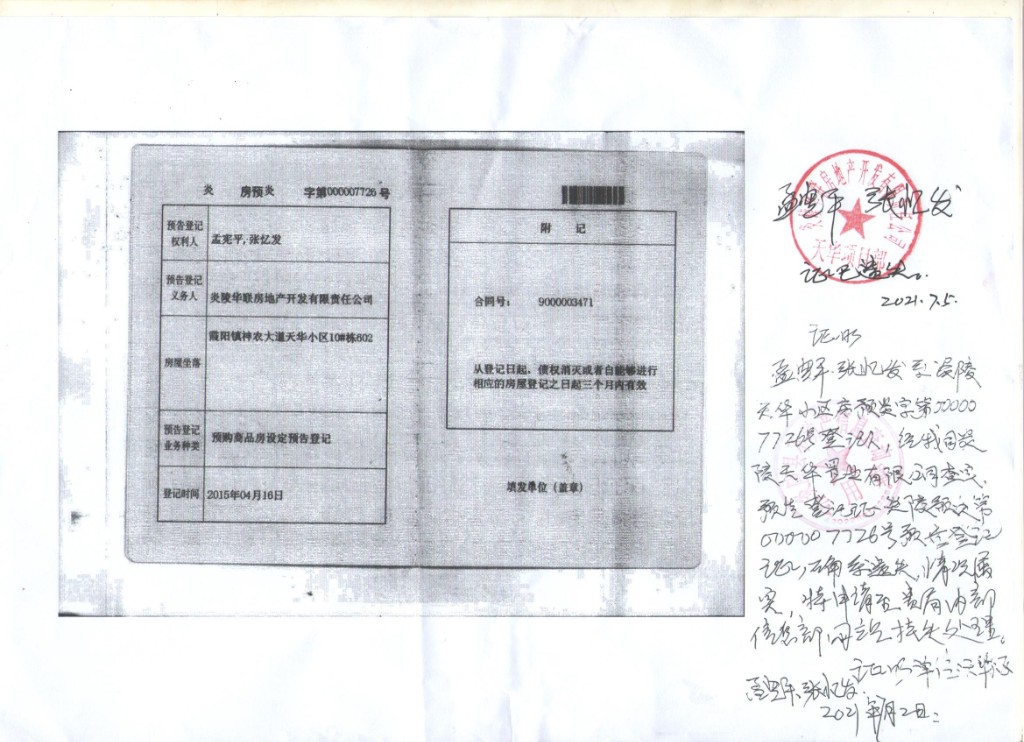 炎 房预炎 字第000007726号
预告登记权利人 孟宪平,张忆发
预告登记义务人 炎陵华联房地产开发有限责任公司
房屋坐落 霞阳镇神农大道天华小区10#栋602
预告登记业务种类 预购商品房设定预告登记
登记时间 2015年04月16日
附 记
合同号： 9000003471
从登记日起，债权消灭或者自能够进行
相应的房屋登记之日起三个月内有效
填发单位（盖章）
房地产开发有限
天华项目部
孟宪平 张忆发
证已遗失。
2021.7.5.
证明
孟宪平.张忆发系炎陵
天华小区房预炎字第00000
7726号登记人，经我司炎
陵天华置业有限公司查实
预告登记证 炎陵预 第
000007726号预告登记
证，确系遗失，情况属
实，特申请 贵局内部
信息部 挂失处理。
证明单位：天华
孟宪平.张忆发.
2021年 月2日